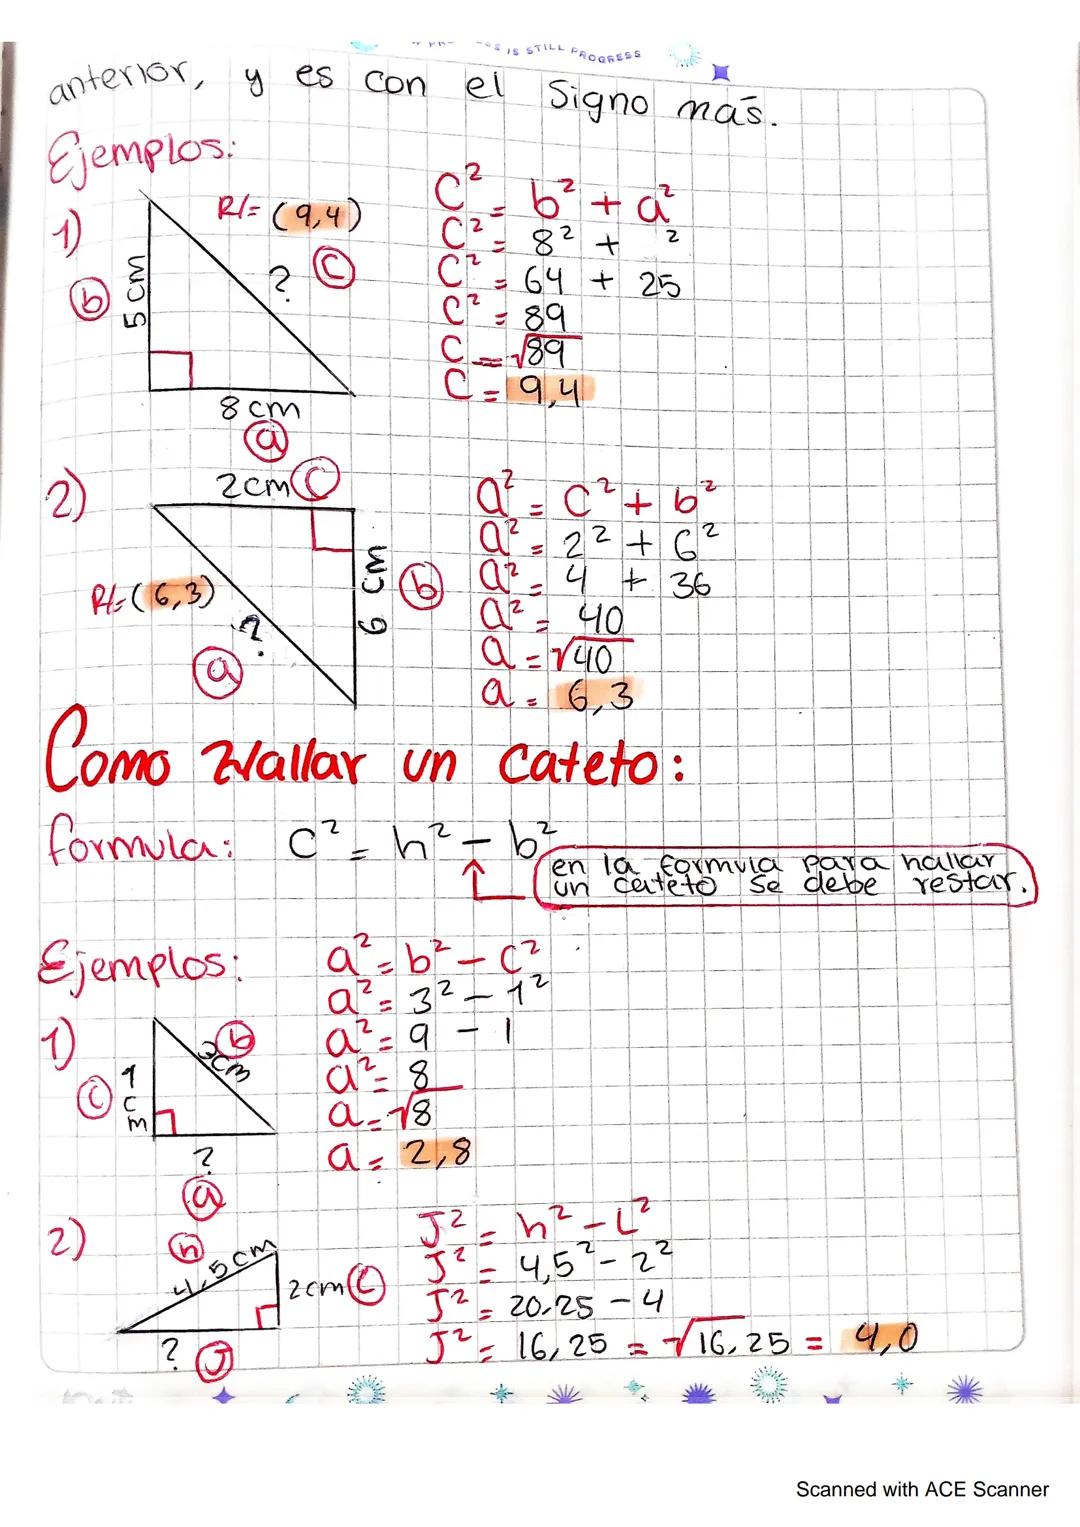 IS STILL PROGRESS
anterior, y es con el signo más.
Ejemplos:
1)
R/= (9,4)
b
5 cm
? c
8 cm
a
C² = b² + a²
C² = 8² + ²
C² = 64 + 25
C² = 89
C = √89
C = 9,4
2)
2cm c
R/= (6,3)
?
a
6 cm
b
a² = c² + b²
a² = 2² + 6²
a² = 4 + 36
a² = 40
a = √40
a = 6,3
Como Hallar un cateto:
formula: c² = h² - b²
en la formula para hallar
un cateto se debe restar.
Ejemplos:
1)
c
1 cm
3cm
b
?
a
a² = b² - c²
a² = 3² - 1²
a² = 9 - 1
a² = 8
a = √8
a = 2,8
2)
h
4,5 cm
2cm L
? J
J² = h² - L²
J² = 4,5² - 2²
J² = 20.25 - 4
J² = 16,25 = √16,25 = 4,0
Scanned with ACE Scanner